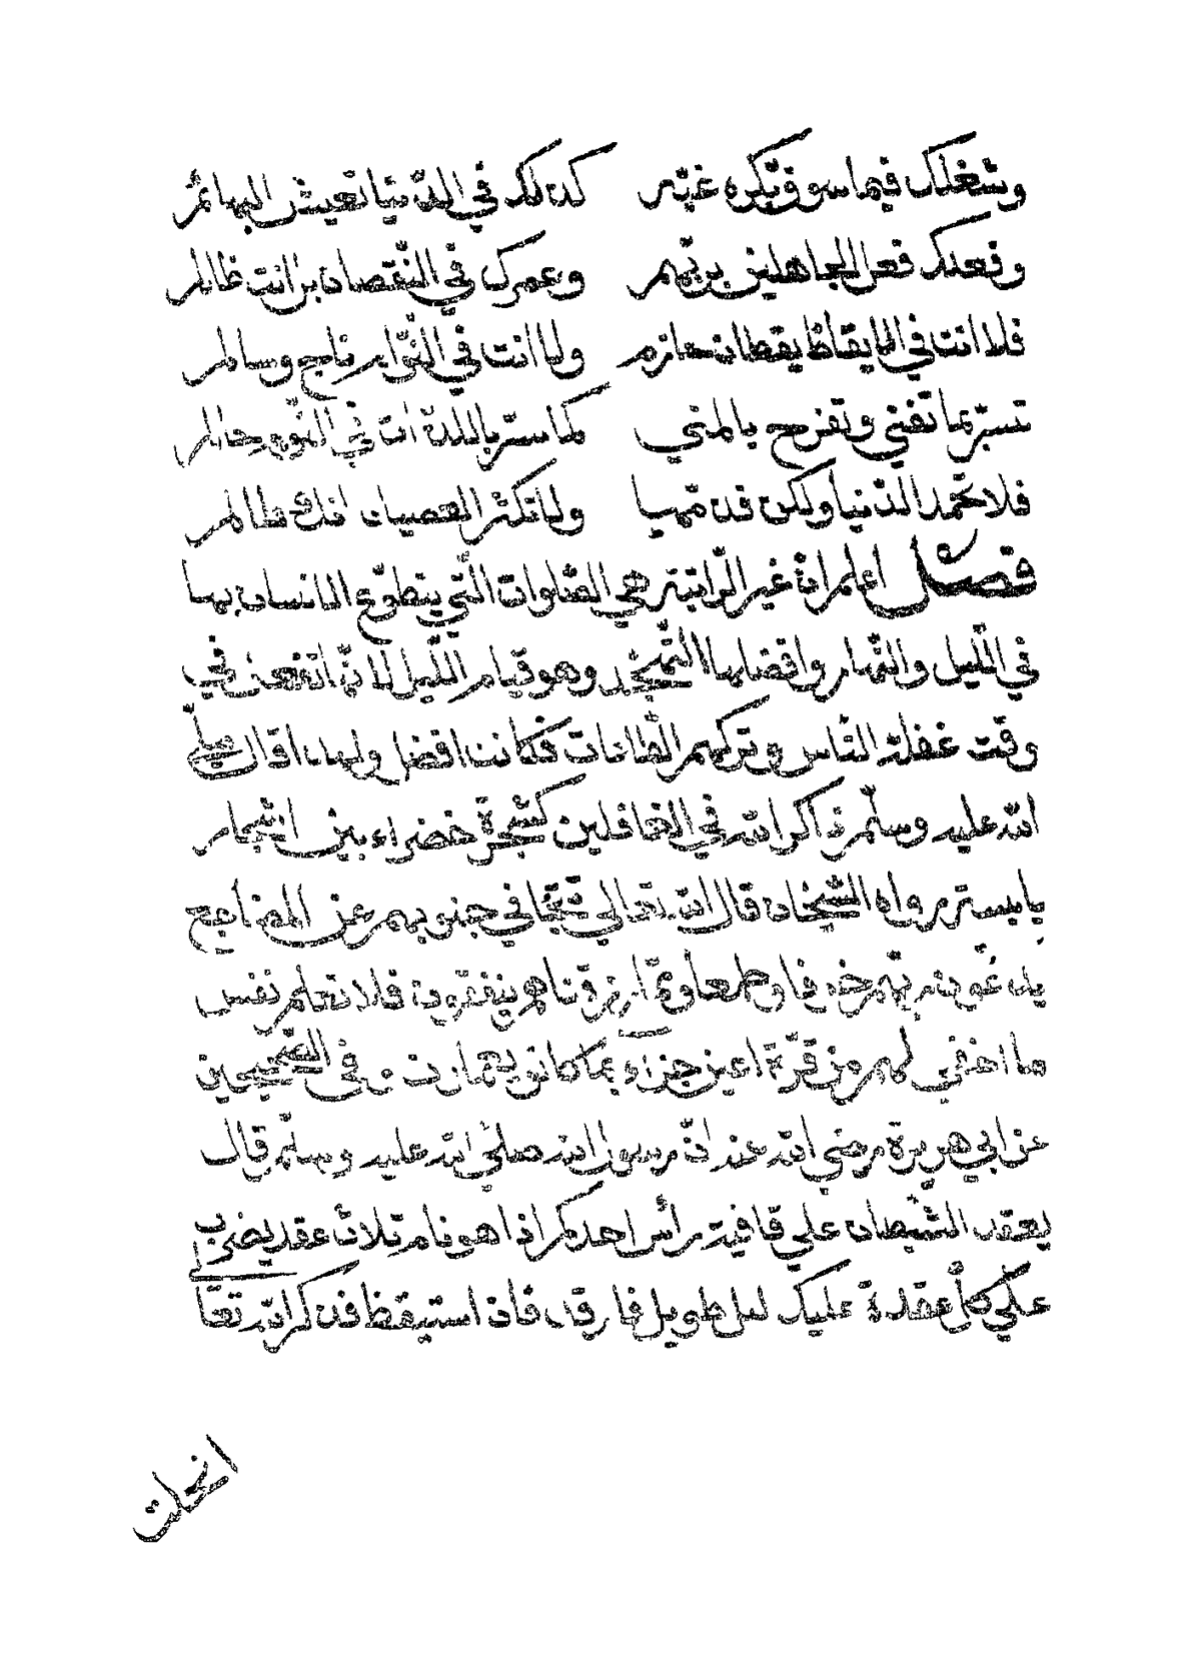 وشغلك فيما سوف تكره غبّه كذلك في الدّنيا تعيش البهائم
وفعلك فعل الجاهلين بربّهم وعمرك في النّقصان بل انت ظالم
فلا انت في الايقاظ يقظان حازم ولا انت في النّوّام ناج وسالم
تسرّ بما تفني وتفرح بالمني كما سرّ باللذّات في النّوم حالم
فلا تحمد الدّنيا ولكن فذمّها ولا تكثر العصيان انك ظالم
فصل اعلم انّ غير الرّاتبة هي الصّلوات الّتي يتطوّع الانسان بها
في اللّيل والنّهار وافضلها التّهجّد وهو قيام اللّيل لانّها تفعل في
وقت غفلة النّاس وتركهم الطّاعات فكانت افضل ولهذا قال صلّي
الله عليه وسلّم ذاكر الله في الغافلين كشجرة خضراء بين اشجار
يابسة رواه الشّيخان قال الله تعالي تتجافي جنوبهم عن المضاجع
يدعون ربّهم خوفا وطمعا وممّا رزقناهم ينفقون فلا تعلم نفس
ما اخفي لهم من قرّة اعين جزاء بما كانوا يعملون وفي الصّحيحين
عن ابي هريرة رضي الله عنه انّ رسول الله صلّي الله عليه وسلّم قال
يعقد الشّيطان علي قافية رأس احدكم اذا هو نام ثلاث عقد يضرب
علي كلّ عقدة عليك ليل طويل فارقد فان استيقظ فذكر الله تعا
انحلت